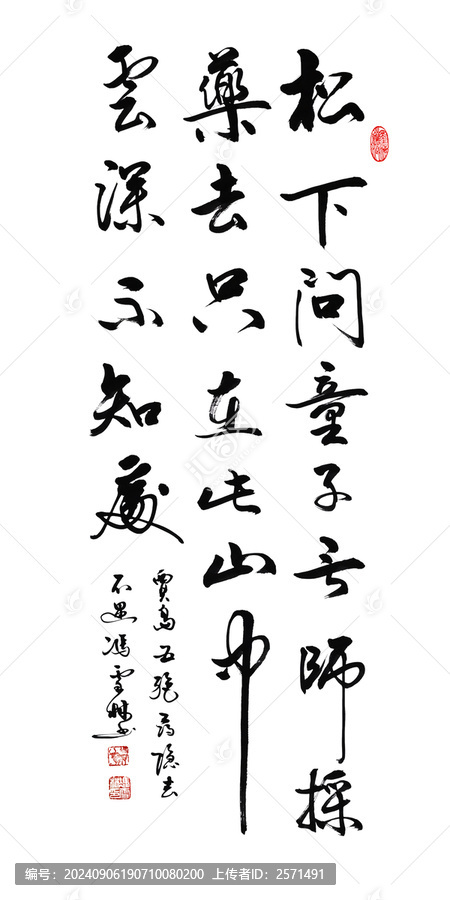 松下問童子言師採
藥去只在此山中
雲深不知處
賈島五絕尋隐者
不遇馮雪林书
编号：20240906190710080200 上传者ID：2571491